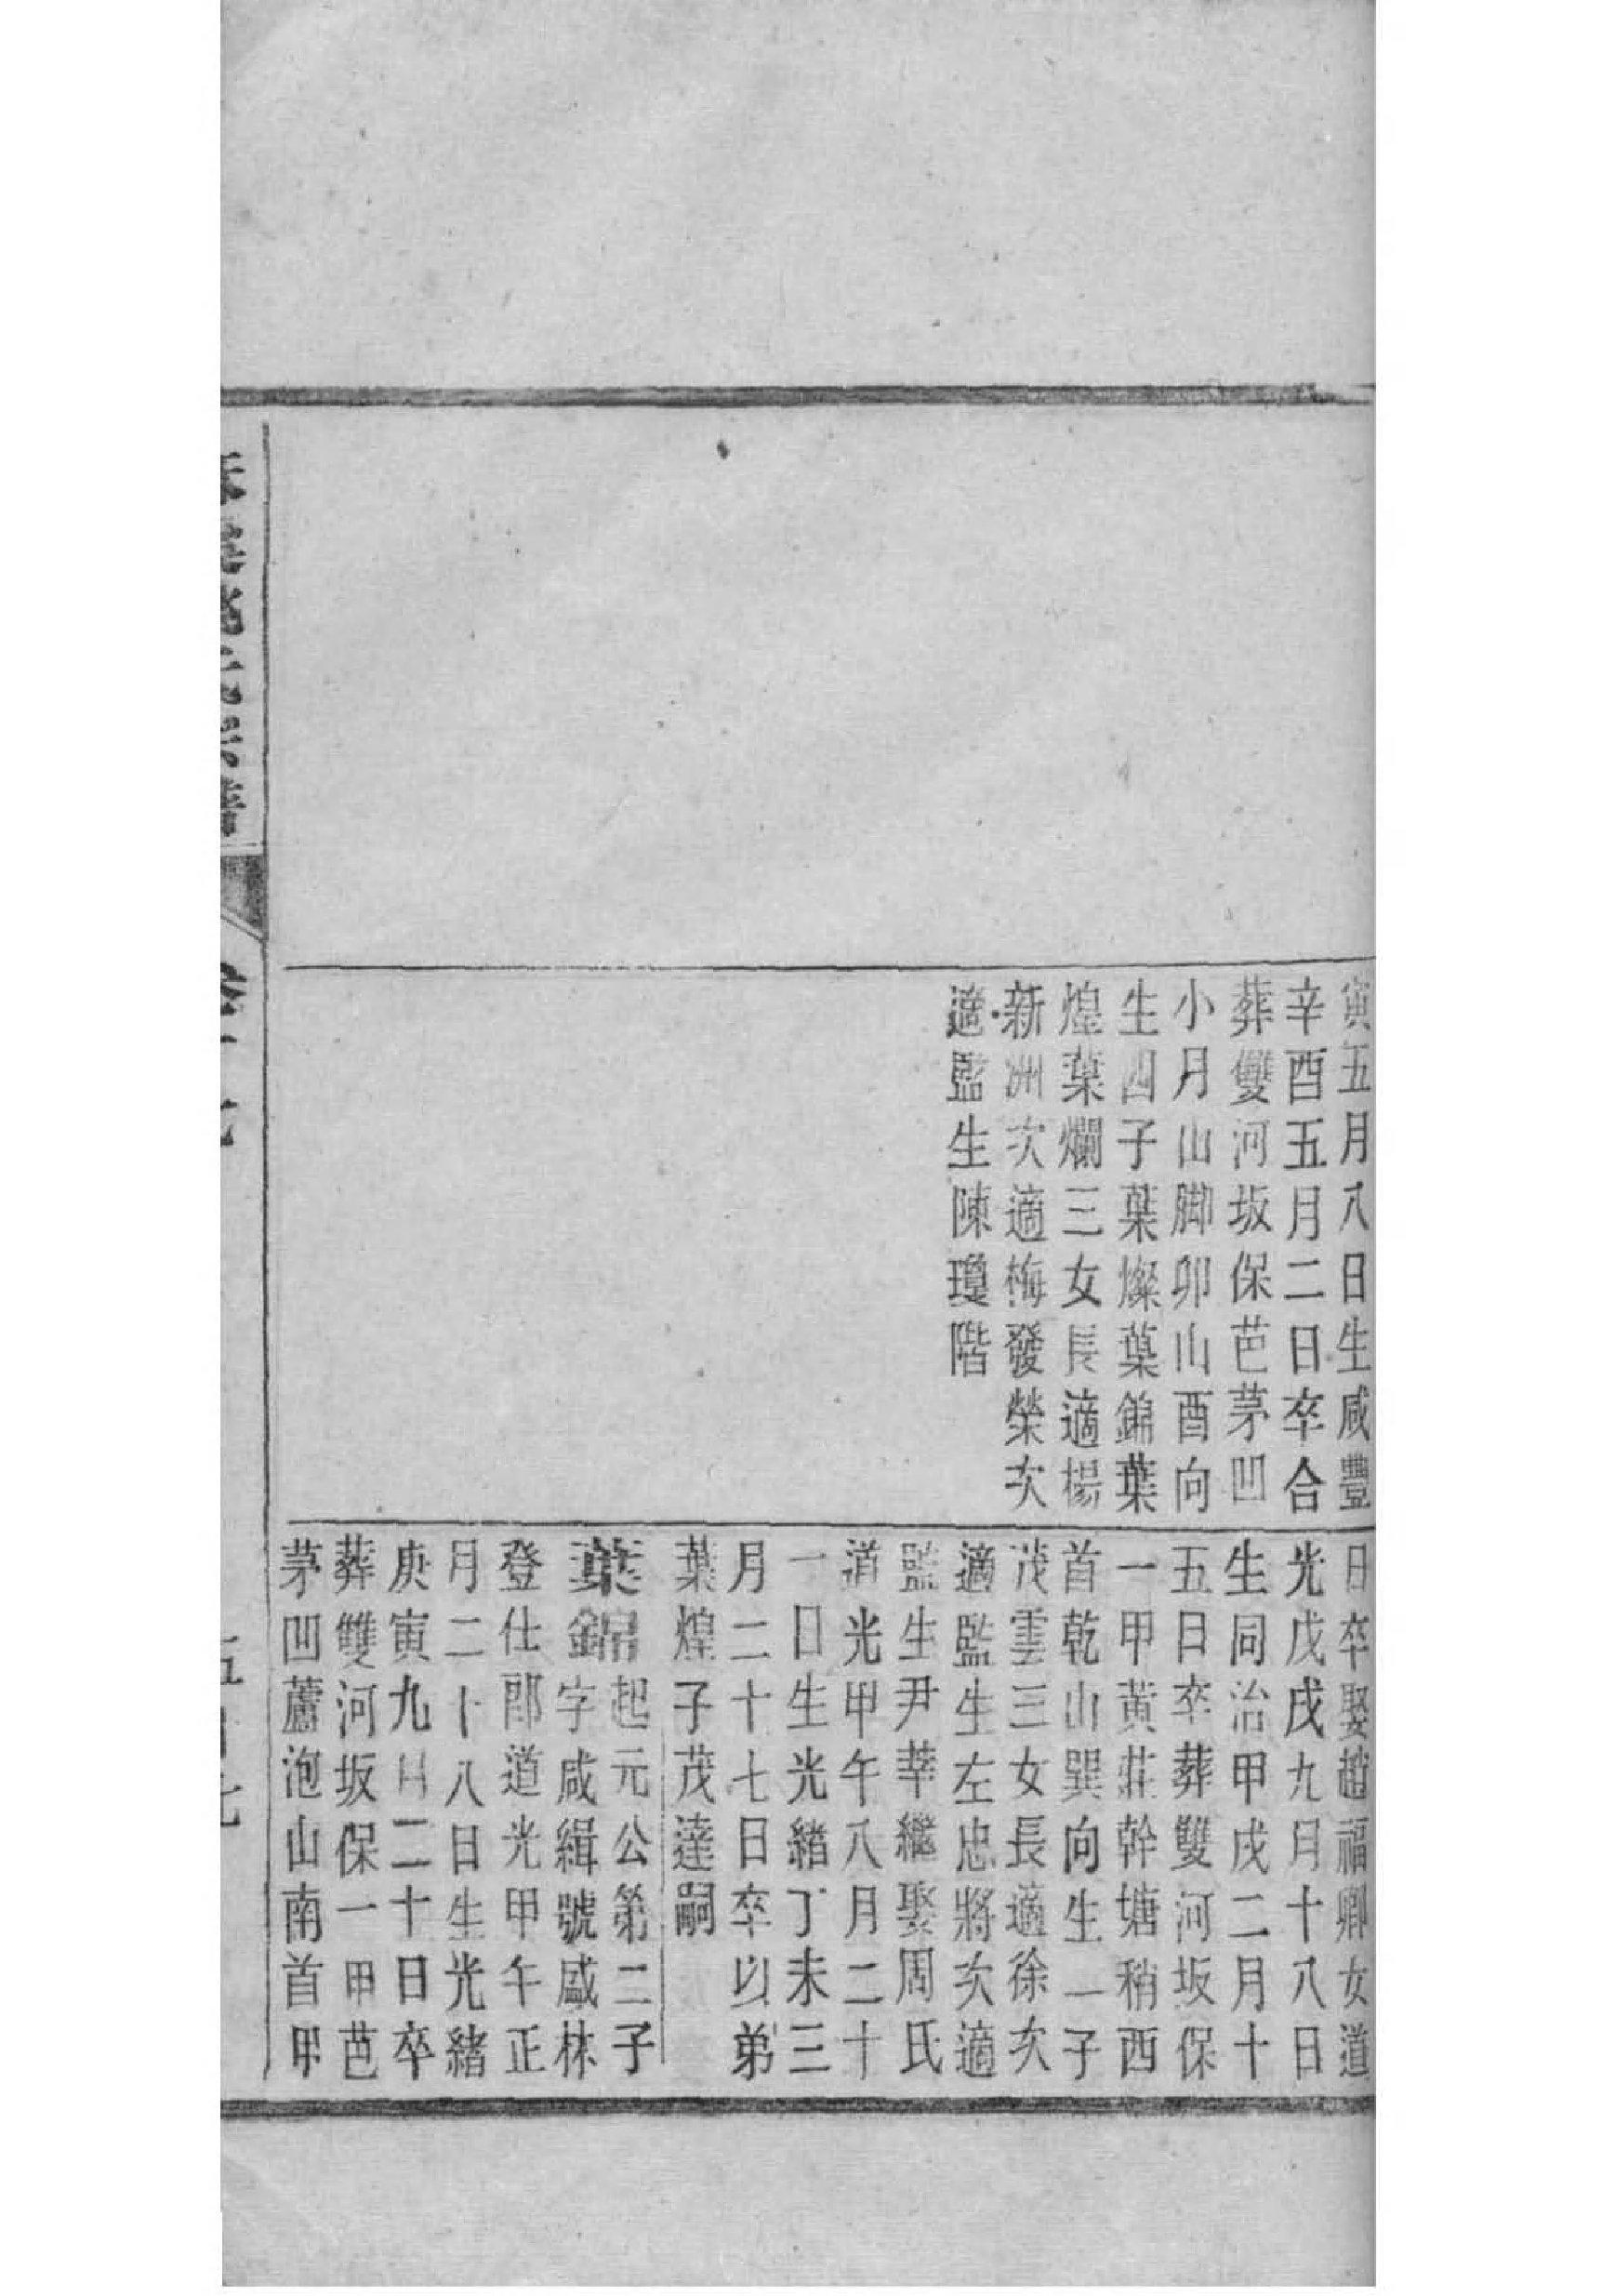 寅五月八日生咸豐
辛酉五月二日卒合
葬雙河坂保芭茅凹
小月山脚卯山酉向
生四子葉燦葉錦葉
煌葉爛三女長適楊
新洲次適梅發榮次
適監生陳瓊階
日卒娶趙福卿女道
光戊戌九月十八日
生同治甲戌二月十
五日卒葬雙河坂保
一甲黄莊幹塘稍西
首乾山巽向生一子
茂雲三女長適徐次
適監生左忠將次適
監生尹莘繼娶周氏
道光甲午八月二十
一日生光緒丁未三
月二十七日卒以弟
葉煌子茂達嗣
葉錦起元公第二子
字咸緝號盛林
登仕郎道光甲午正
月二十八日生光緒
庚寅九月二十日卒
葬雙河坂保一甲芭
茅凹蘆泡山南首甲